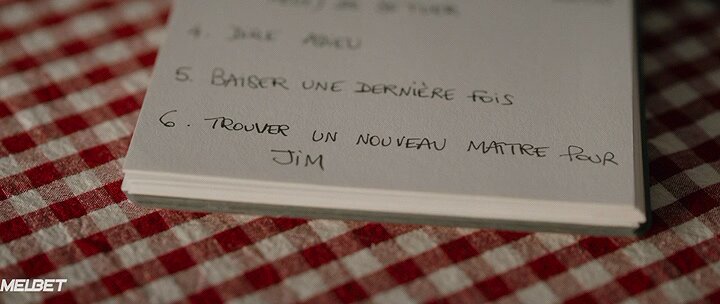 4. DIRE ADIEU
5. BAISER UNE DERNIÈRE FOIS
6. TROUVER UN NOUVEAU MAÎTRE POUR
JIM
MELBET